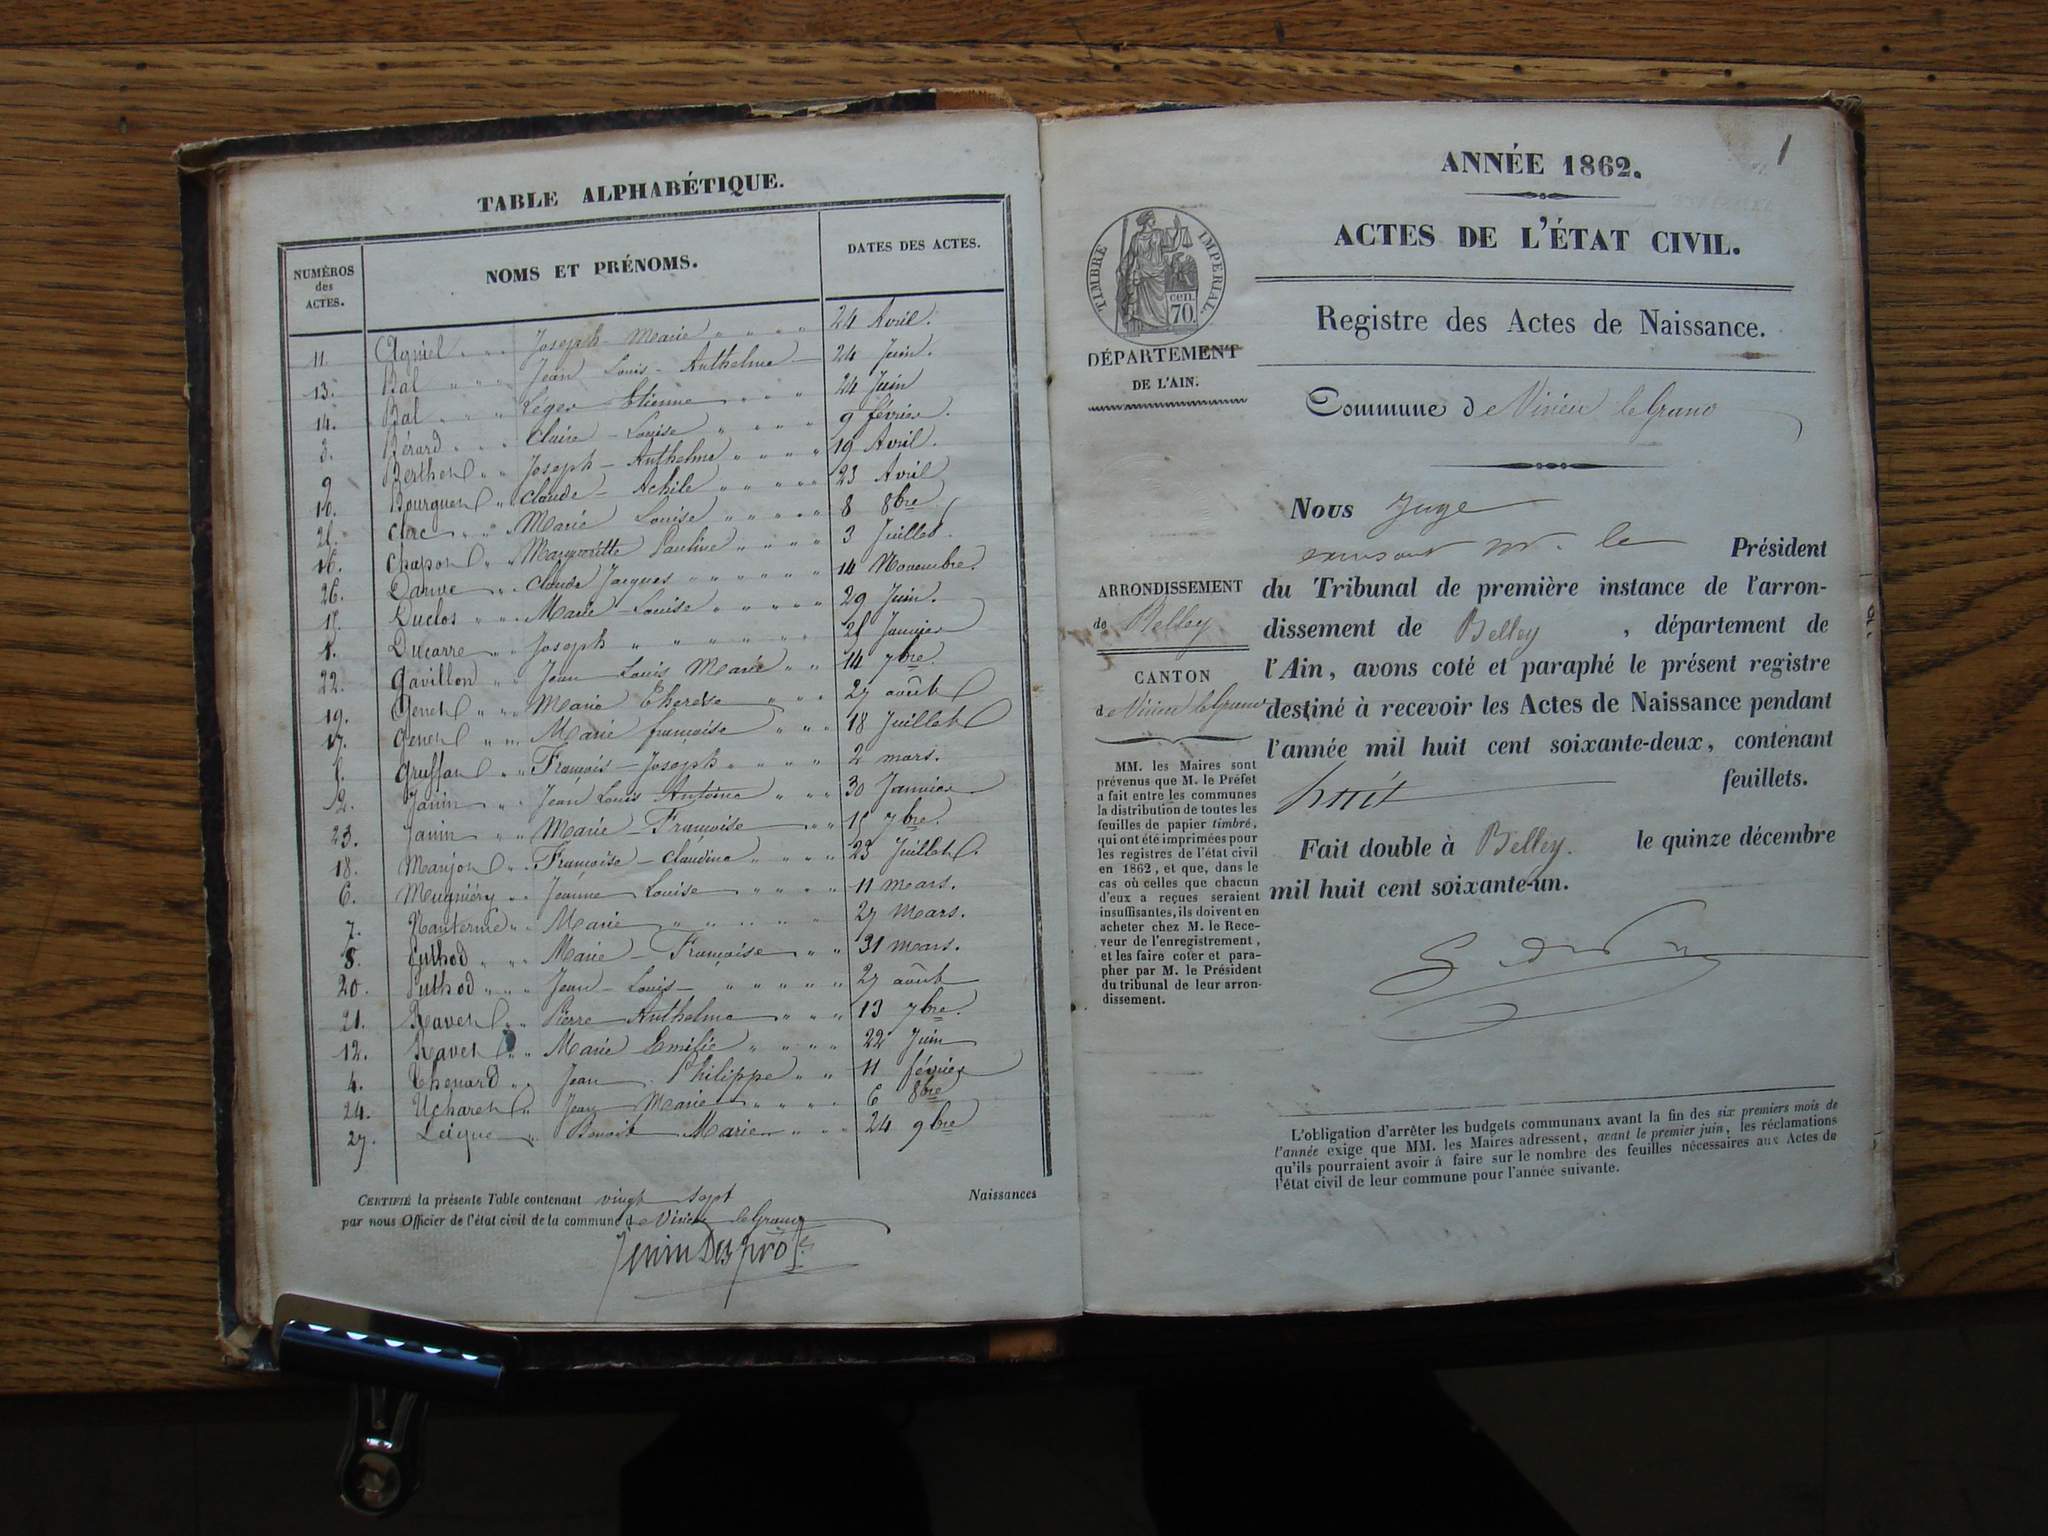 TABLE ALPHABÉTIQUE.
NUMÉROS des ACTES.
NOMS ET PRÉNOMS.
DATES DES ACTES.
11. Joseph-Marie 24 Avril.
13. Bal Jean Louis-Anthelme 24 Juin.
14. Bal Léger Etienne 24 Juin
3. Bérard Claire-Louise 9 février.
9 Berthet Joseph-Anthelme 19 Avril.
10. Bourguet Claude-Achile 23 Avril
25. Clerc Marie Louise 8 8bre
16. Chapot Margueritte Pauline 3 Juillet.
26. Claude Jacques 14 Novembre.
15. Duclos Marie-Louise 29 Juin.
1. Ducarre Joseph 25 Janvier
22. Gavillon Jean Louis Marie 14 7bre.
19. Genet Marie Therèse 27 août
17. Genet Marie françoise 18 Juillet
5. Gruffat François-Joseph 2 mars.
2. Janin Jean Louis Antoine 30 Janvier
23. Janin Marie-Françoise 15 7bre.
18. Manjot Françoise-Claudine 23 Juillet.
6. Mugniéry Jeanne Louise 11 mars.
7. Marie 27 Mars.
8. Puthod Marie-Françoise 31 mars.
20. Puthod Jean-Louis 27 août
21. Ravet Pierre Anthelme 13 7bre.
12. Ravet Marie Emilie 22 Juin
4. Thenard Jean Philippe 11 février
24. Ucharet Jean Marie 6 8bre
27. Benoit Marie 24 9bre
CERTIFIÉ la présente Table contenant vingt sept Naissances
par nous Officier de l'état civil de la commune de Virieu le Grand
1
ANNÉE 1862.
ACTES DE L'ÉTAT CIVIL.
Registre des Actes de Naissance.
TIMBRE IMPERIAL
cen. 70.
DÉPARTEMENT
DE L'AIN.
Commune de Virieu le Grand
Nous Juge
M. le Président
du Tribunal de première instance de l'arron-
dissement de Belley, département de
l'Ain, avons coté et paraphé le présent registre
destiné à recevoir les Actes de Naissance pendant
l'année mil huit cent soixante-deux, contenant
huit feuillets.
Fait double à Belley. le quinze décembre
mil huit cent soixante-un.
ARRONDISSEMENT
de Belley
CANTON
de Virieu le Grand
MM. les Maires sont
prévenus que M. le Préfet
a fait entre les communes
la distribution de toutes les
feuilles de papier timbré,
qui ont été imprimées pour
les registres de l'état civil
en 1862, et que, dans le
cas où celles que chacun
d'eux a reçues seraient
insuffisantes, ils doivent en
acheter chez M. le Rece-
veur de l'enregistrement,
et les faire coter et para-
pher par M. le Président
du tribunal de leur arron-
dissement.
L'obligation d'arrêter les budgets communaux avant la fin des six premiers mois de
l'année exige que MM. les Maires adressent, avant le premier juin, les réclamations
qu'ils pourraient avoir à faire sur le nombre des feuilles nécessaires aux Actes de
l'état civil de leur commune pour l'année suivante.